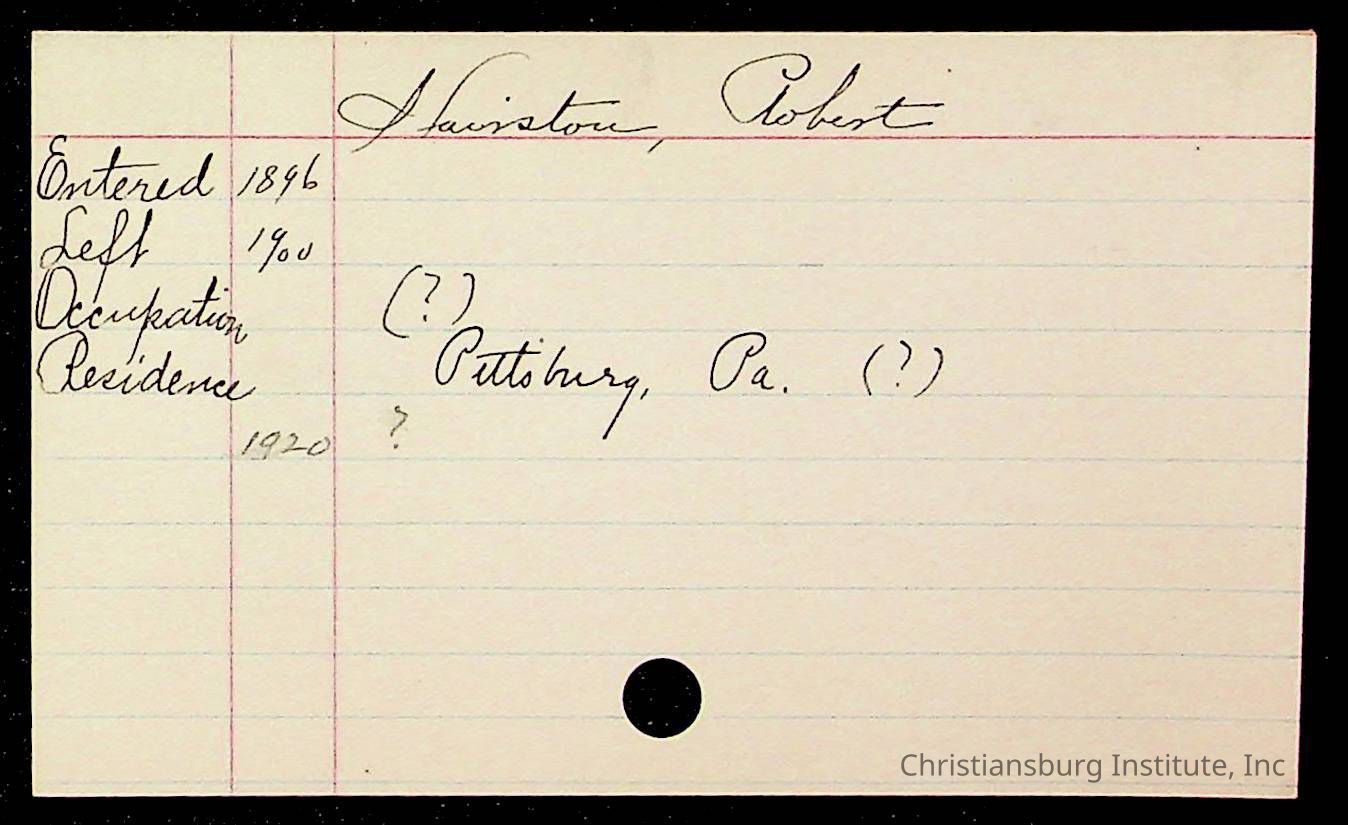 Hairston, Robert
Entered 1896
Left 1900
Occupation (?)
Residence Pittsburg, Pa. (?)
1920 ?
Christiansburg Institute, Inc